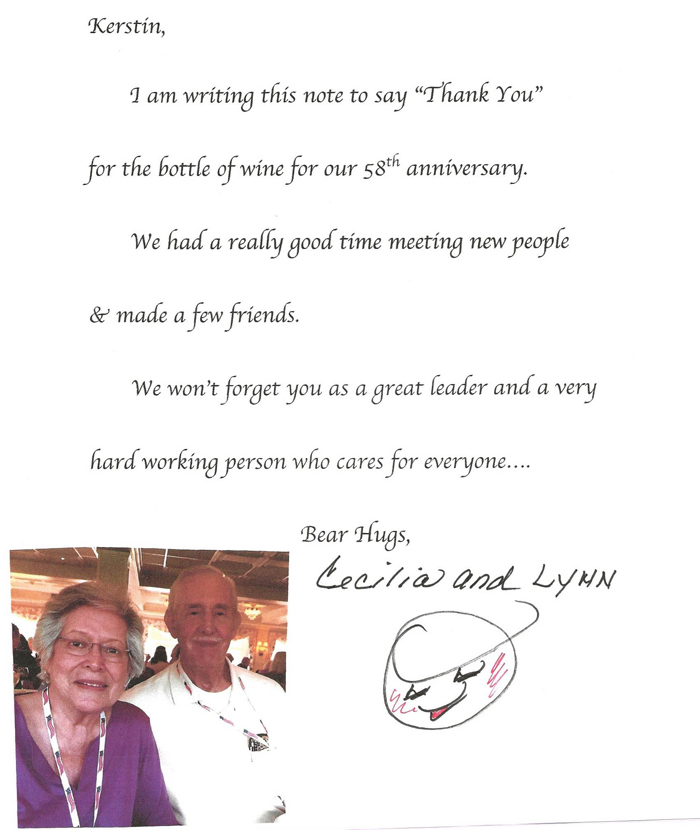 Kerstin,
I am writing this note to say “Thank You”
for the bottle of wine for our 58th anniversary.
We had a really good time meeting new people
& made a few friends.
We won't forget you as a great leader and a very
hard working person who cares for everyone....
Bear Hugs,
Cecilia and LYNN